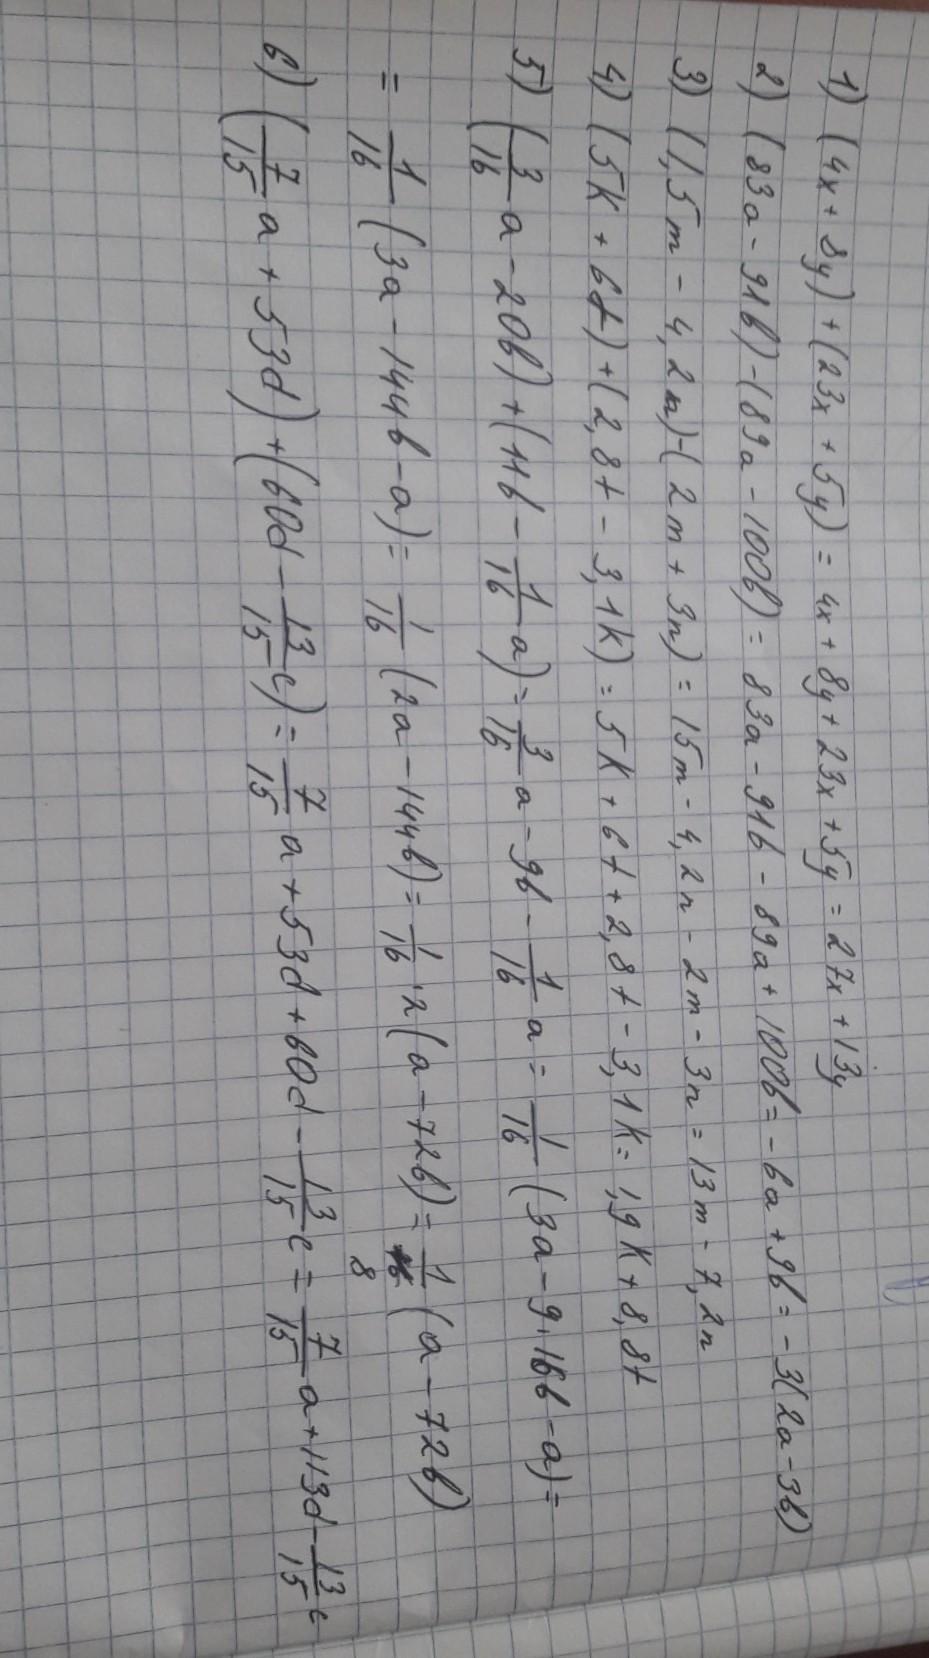 1) (4x + 8y) + (23x + 5y) = 4x + 8y + 23x + 5y = 27x + 13y
2) (83a - 91b) - (89a - 100b) = 83a - 91b - 89a + 100b = -6a + 9b = -3(2a - 3b)
3) (1,5m - 4,2n) - (2m + 3n) = 15m - 4,2n - 2m - 3n = 13m - 7,2n
4) (5k + 6t) + (2,8t - 3,1k) = 5k + 6t + 2,8t - 3,1k = 1,9k + 8,8t
5) (3/16 a - 20b) + (11b - 1/16 a) = 3/16 a - 9b - 1/16 a = 1/16 (3a - 9·16b - a) =
= 1/16 (3a - 144b - a) = 1/16 (2a - 144b) = 1/16 · 2(a - 72b) = 1/8 (a - 72b)
6) (7/15 a + 53d) + (60d - 13/15 c) = 7/15 a + 53d + 60d - 13/15 c = 7/15 a + 113d - 13/15 c